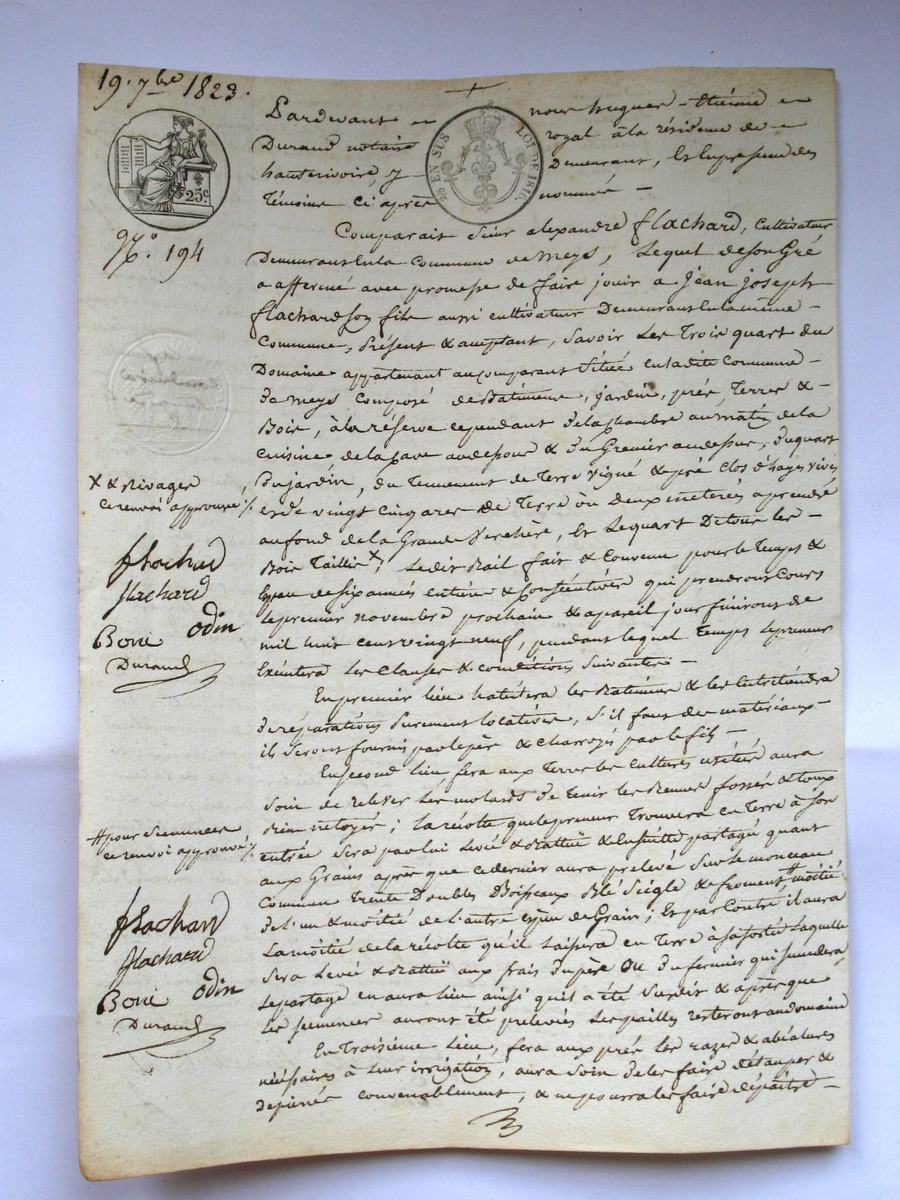 19. 7bre 1823.
25c.
N.o 194
Pardevant nous hugues-Etienne
Durand notaire royal à la résidence de
hauterivoire, y Demeurant, Et En présence des
Témoins Ci après nommés —
EN SUS
LOI DE 1816.
Comparait Sieur alexandre flachard, Cultivateur
Demeurant En la Commune de Meys, Lequel de Son Gré
a affermé avec promesse de faire jouir a Jean joseph
flachard Son fils aussi Cultivateur Demeurant En la même
Commune, Présent & acceptant, Savoir Les Trois quart du
Domaine appartenant au comparant Situé en la dite Commune
de Meys Composé de Batimens, jardin, prés, Terres &
Bois, à la réserve cependant de la chambre au matin de la
Cuisine de la Cave au dessous & du Grenier au dessus, du quart
Du jardin, du Tennement de Terre Vigne & pré Clos d'hayes vives
et de vingt Cinq ares de Terre ou Deux meterés a prendre
au fond de la Grande Verchère, Et Le quart De tous les
Bois Taillis X; Le dit Bail fait & Convenu pour le Temps &
Espace de Six années entières & Consécutives qui prendront Cours
Le premier novembre prochain & a pareil jour finiront de
mil huit Cent vingt neuf, pendant lequel Temps Le preneur
Exécutera Les Clauses & Conditions Suivantes —
X & Rivages
Ce renvoi approuvé ·/.
flachard
flachard
Boni Odin
Durand
En premier lieu habitera les Batimens & les Entretiendra
de réparations purement locatives, S'il faut des matériaux
ils Seront fournis par le père & Charroyés par le fils —
En Second lieu, fera aux Terres les Cultures usitées aura
Soin de relever Les molards de Tenir les Fossés & Toux
Bien netoyés; La récolte que le preneur Trouvera en Terre à Son
entrée Sera par lui Levée & Battue & Ensuite partagée quant
aux Grains après que Ce dernier aura prélevé Sur Le monceau
Commun Trente Doubles Boisseaux Blé Seigle & froment # moitié
de l'un & moitié de l'autre Espèce de Grain; Et par Contre il aura
La moitié de la récolte qu'il Laissera en Terre à Sa Sortie Laquelle
Sera Levée & Battue aux frais du père ou du fermier qui Succèdera
Le partage en aura lieu ainsi qu'il a été Susdit & après que
Les Semences auront été prélevées Les pailles resteront au domaine
# pour Semences
Ce renvoi approuvé ·/.
flachard
flachard
Boni Odin
Durand
En Troisième Lieu, fera aux prés Les razes &
nécessaires à Leur irrigation, aura Soin de les faire détauper &
convenablement, & ne pourra les faire dépaître